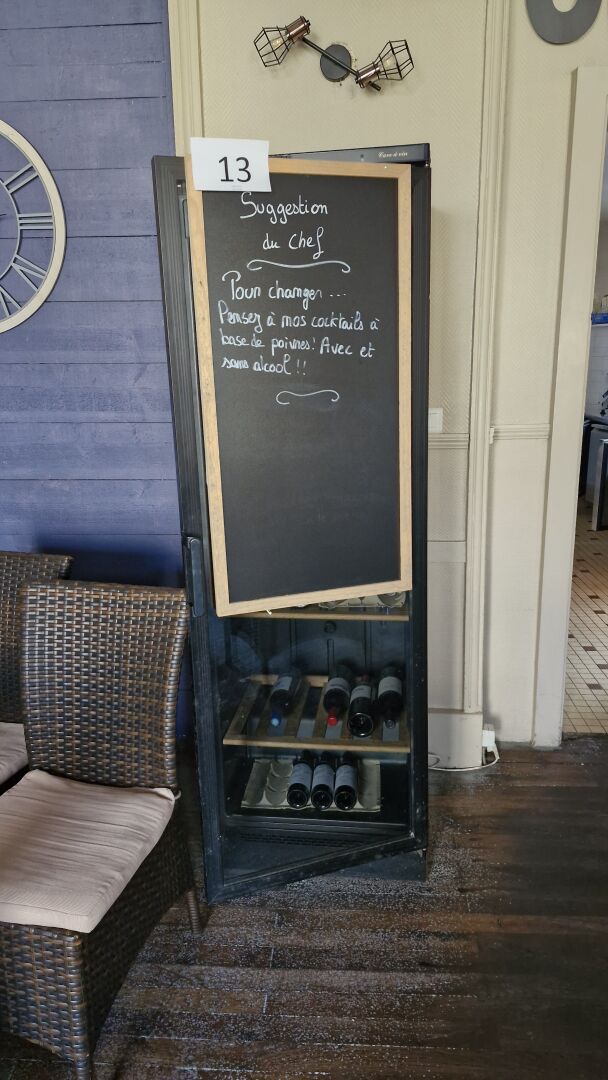 Cave à vin
13
Suggestion
du chef
Pour changer ...
Pensez à nos cocktails à
base de poivres! Avec et
sans alcool !!